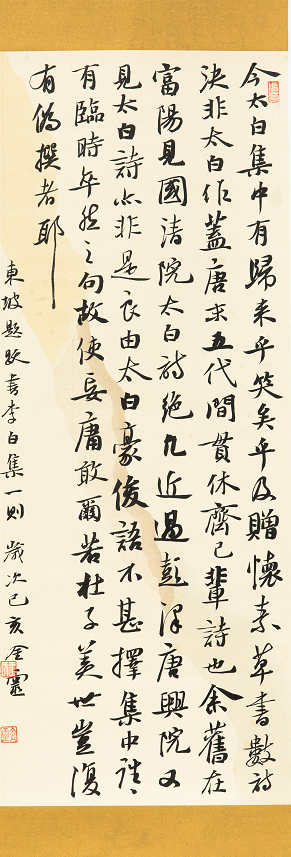 今太白集中有歸來乎笑矣乎及贈懷素草書數詩
決非太白作蓋唐末五代間貫休齊己輩詩也余舊在
富陽見國清院太白詩絕凡近過彭澤唐興院又
見太白詩亦非是良由太白豪俊語不甚擇集中往往
有臨時率然之句故使妄庸敢爾若杜子美世豈復
有偽撰者耶
東坡題跋書李白集一則 歲次己亥 金靈